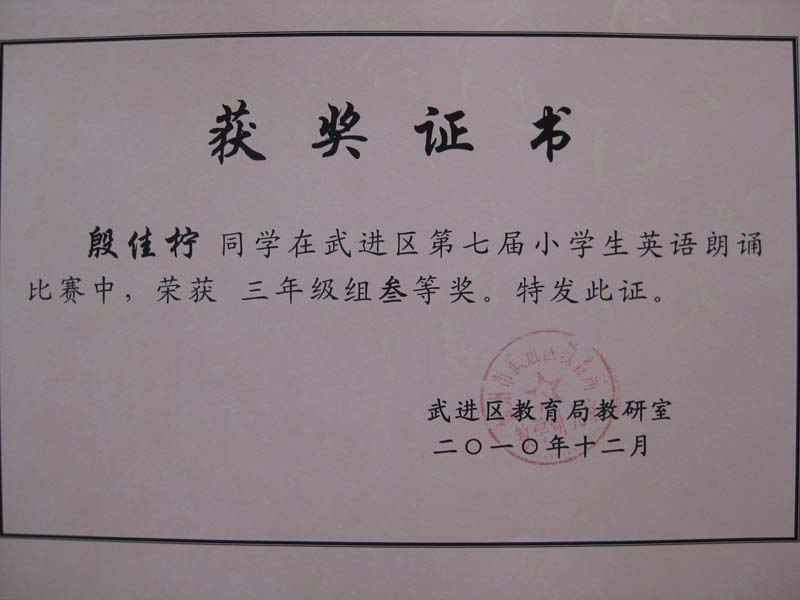 获奖证书
殷佳柠 同学在武进区第七届小学生英语朗诵
比赛中，荣获 三年级组叁等奖。特发此证。
武进区教育局教研室
二〇一〇年十二月